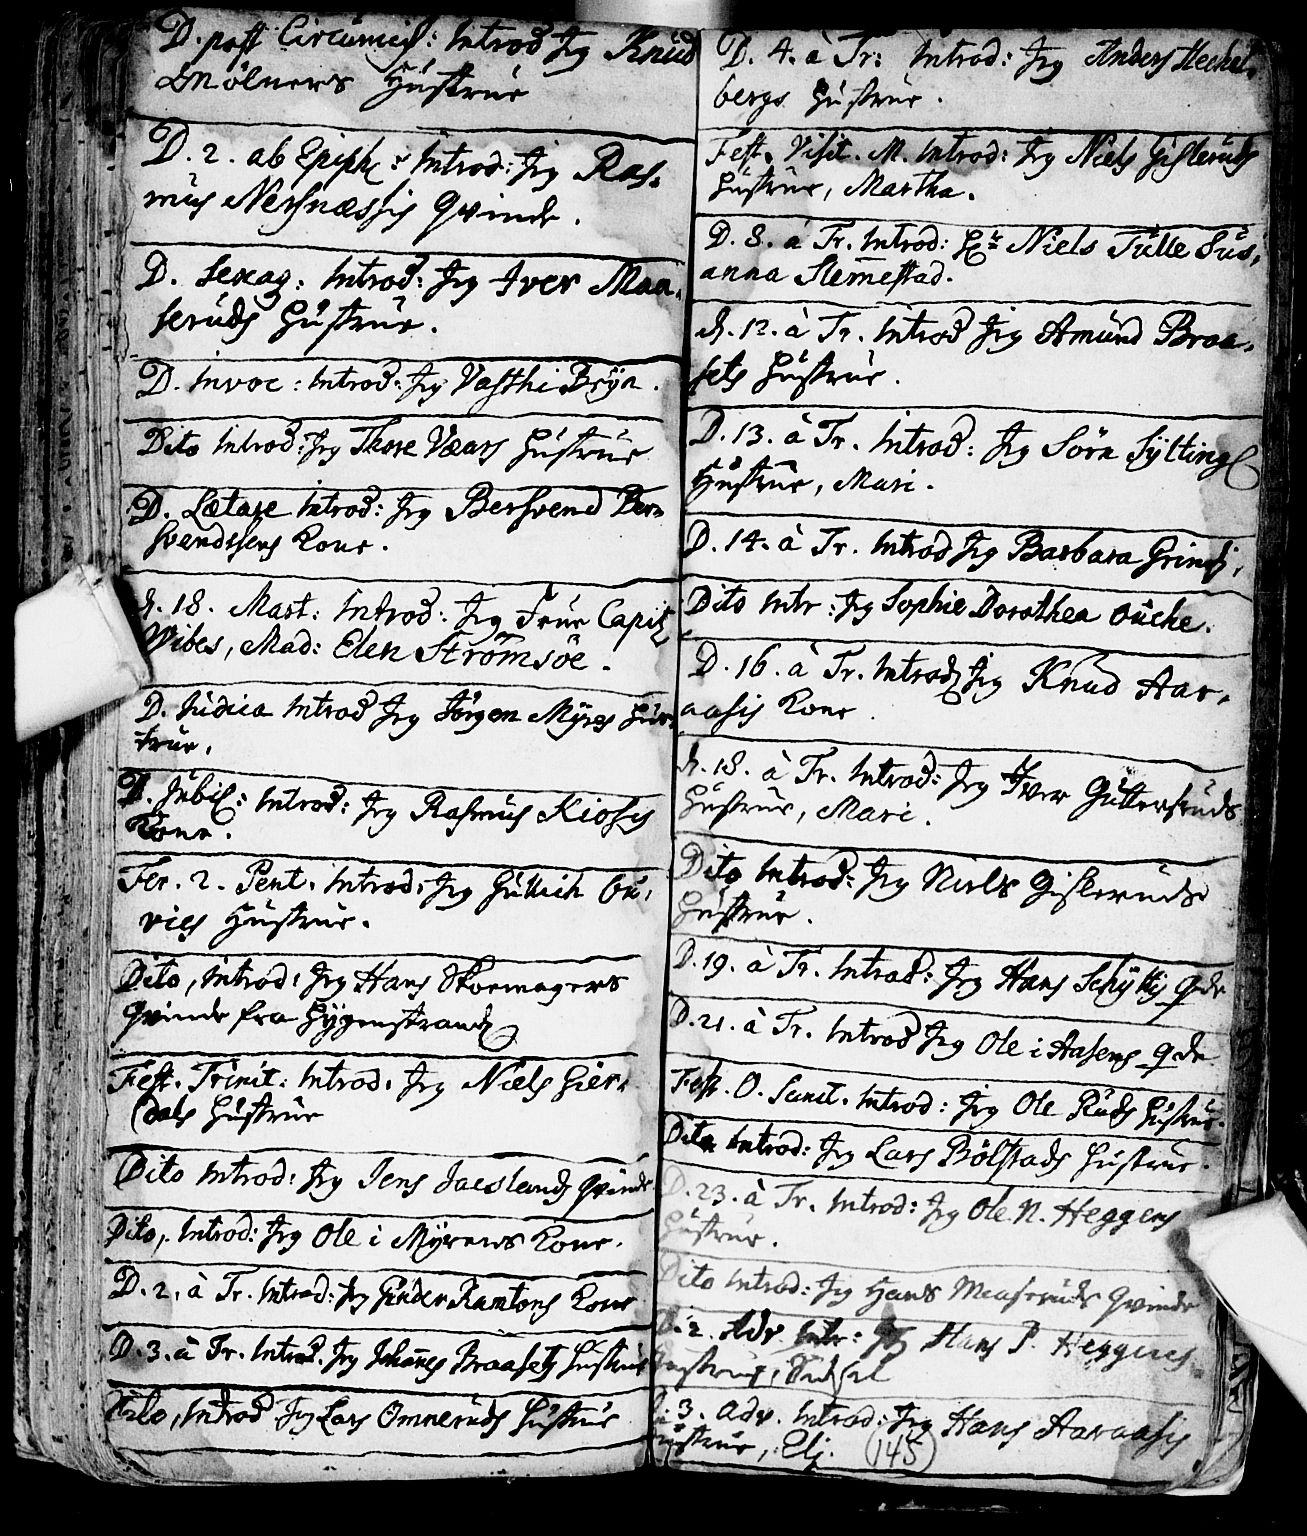 D. post Circumcis: Introd Jeg Knud
Mölners Hustrue
D. 2. ab Epiph: Introd: Jeg Ras,
mus Nersnæssis Qvinde.
D. Sexag: Introd: Jeg Iver Maa,
seruds Hustrue.
D. Invoc: Introd: Jeg Vasthi Bryn.
Dito Introd: Jeg Thore Væars Hustrue
D. Lætare Introd: Jeg Bersvend Ber,
svendssens Kone.
d. 18. Mart: Introd: Jeg Frue Capit
Wibes, Mad: Elen Strömsöe.
D. Judica Introd Jeg Jörgen Myres Hus,
true.
D. Jubil: Introd: Jeg Rasmus Kiosis
Kone.
Fer. 2. Pent. Introd: Jeg Gullich Ou,
ries Hustrue.
Dito, Introd: Jeg Hans Skoemagers
Qvinde fra Hygenstrand
Fest. Trinit: Introd: Jeg Niels Gier,
dals Hustrue
Dito Introd: Jeg Jens Jaeslands Qvinde
Dito, Introd: Jeg Ole i Myrens Kone.
D. 2. à Tr. Introd: Jeg Guder Ramtons Kone
D. 3. à Tr. Introd. Jeg Johanes Braasets Hustrue
Dito, Introd Jeg Lars Omneruds Hustrue
D. 4. à Tr: Introd: Jeg Anders Heckel,
bergs Hustrue.
Fest. Visit. M. Introd: Jeg Niels Gisleruds
Hustrue, Martha.
D. 8. à Tr. Introd: Hr Niels Tulle Sus,
anna Slemestad.
d. 12. à Tr. Introd Jeg Amund Braa,
sets Hustrue.
D. 13. à Tr. Introd: Jeg Sörn Syltings
Hustrue, Mari.
D. 14. à Tr. Introd Jeg Barbara Grimsi,
Dito Intr: Jeg Sophie Dorothea Ouche.
D. 16. à Tr. Introd Jeg Knud Aar,
aasis Kone.
d. 18. à Tr. Introd: Jeg Iver Guttersruds
Hustrue, Mari.
Dito Introd: Jeg Niels Gisleruds
Hustrue.
D. 19. à Tr. Introd: Jeg Hans Schyttis Qde
D. 21. à Tr. Introd Jeg Ole i Aasens Qde
Fest. O. Sanct. Introd: Jeg Ole Ruds Hustrue.
Dito Introd: Jeg Lars Bölstads Hustrue.
D. 23. à Tr. Introd: Jeg Ole N. Heggens
Hustrue.
Dito Introd: Jeg Hans Maaseruds Qvinde
D. 2. Adv. Intr: Jeg Hans P. Heggens
Hustrue, Sidsel
D. 3. Adv. Introd: Jeg Hans Aaraasis
Hustrue, Elj.
145